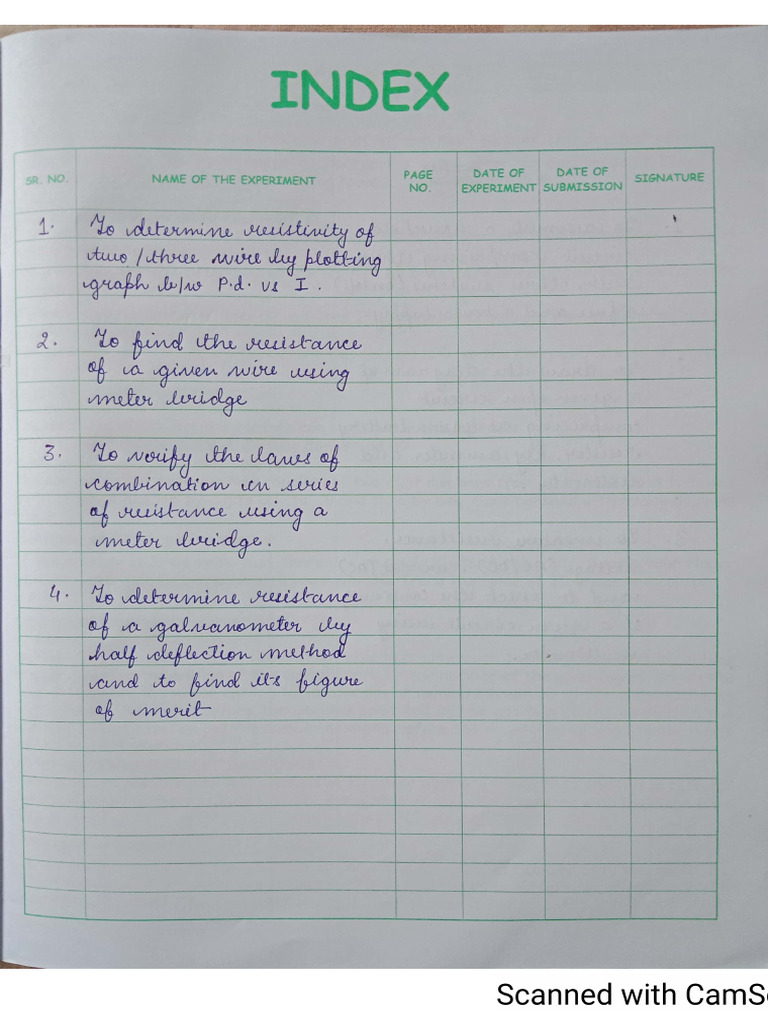 INDEX
SR. NO. NAME OF THE EXPERIMENT PAGE NO. DATE OF EXPERIMENT DATE OF SUBMISSION SIGNATURE
1. To determine resistivity of
two / three wire by plotting
graph b/w P.d. vs I.
2. To find the resistance
of a given wire using
meter bridge
3. To verify the laws of
combination in series
of resistance using a
meter bridge.
4. To determine resistance
of a galvanometer by
half deflection method
and to find its figure
of merit
Scanned with CamSc